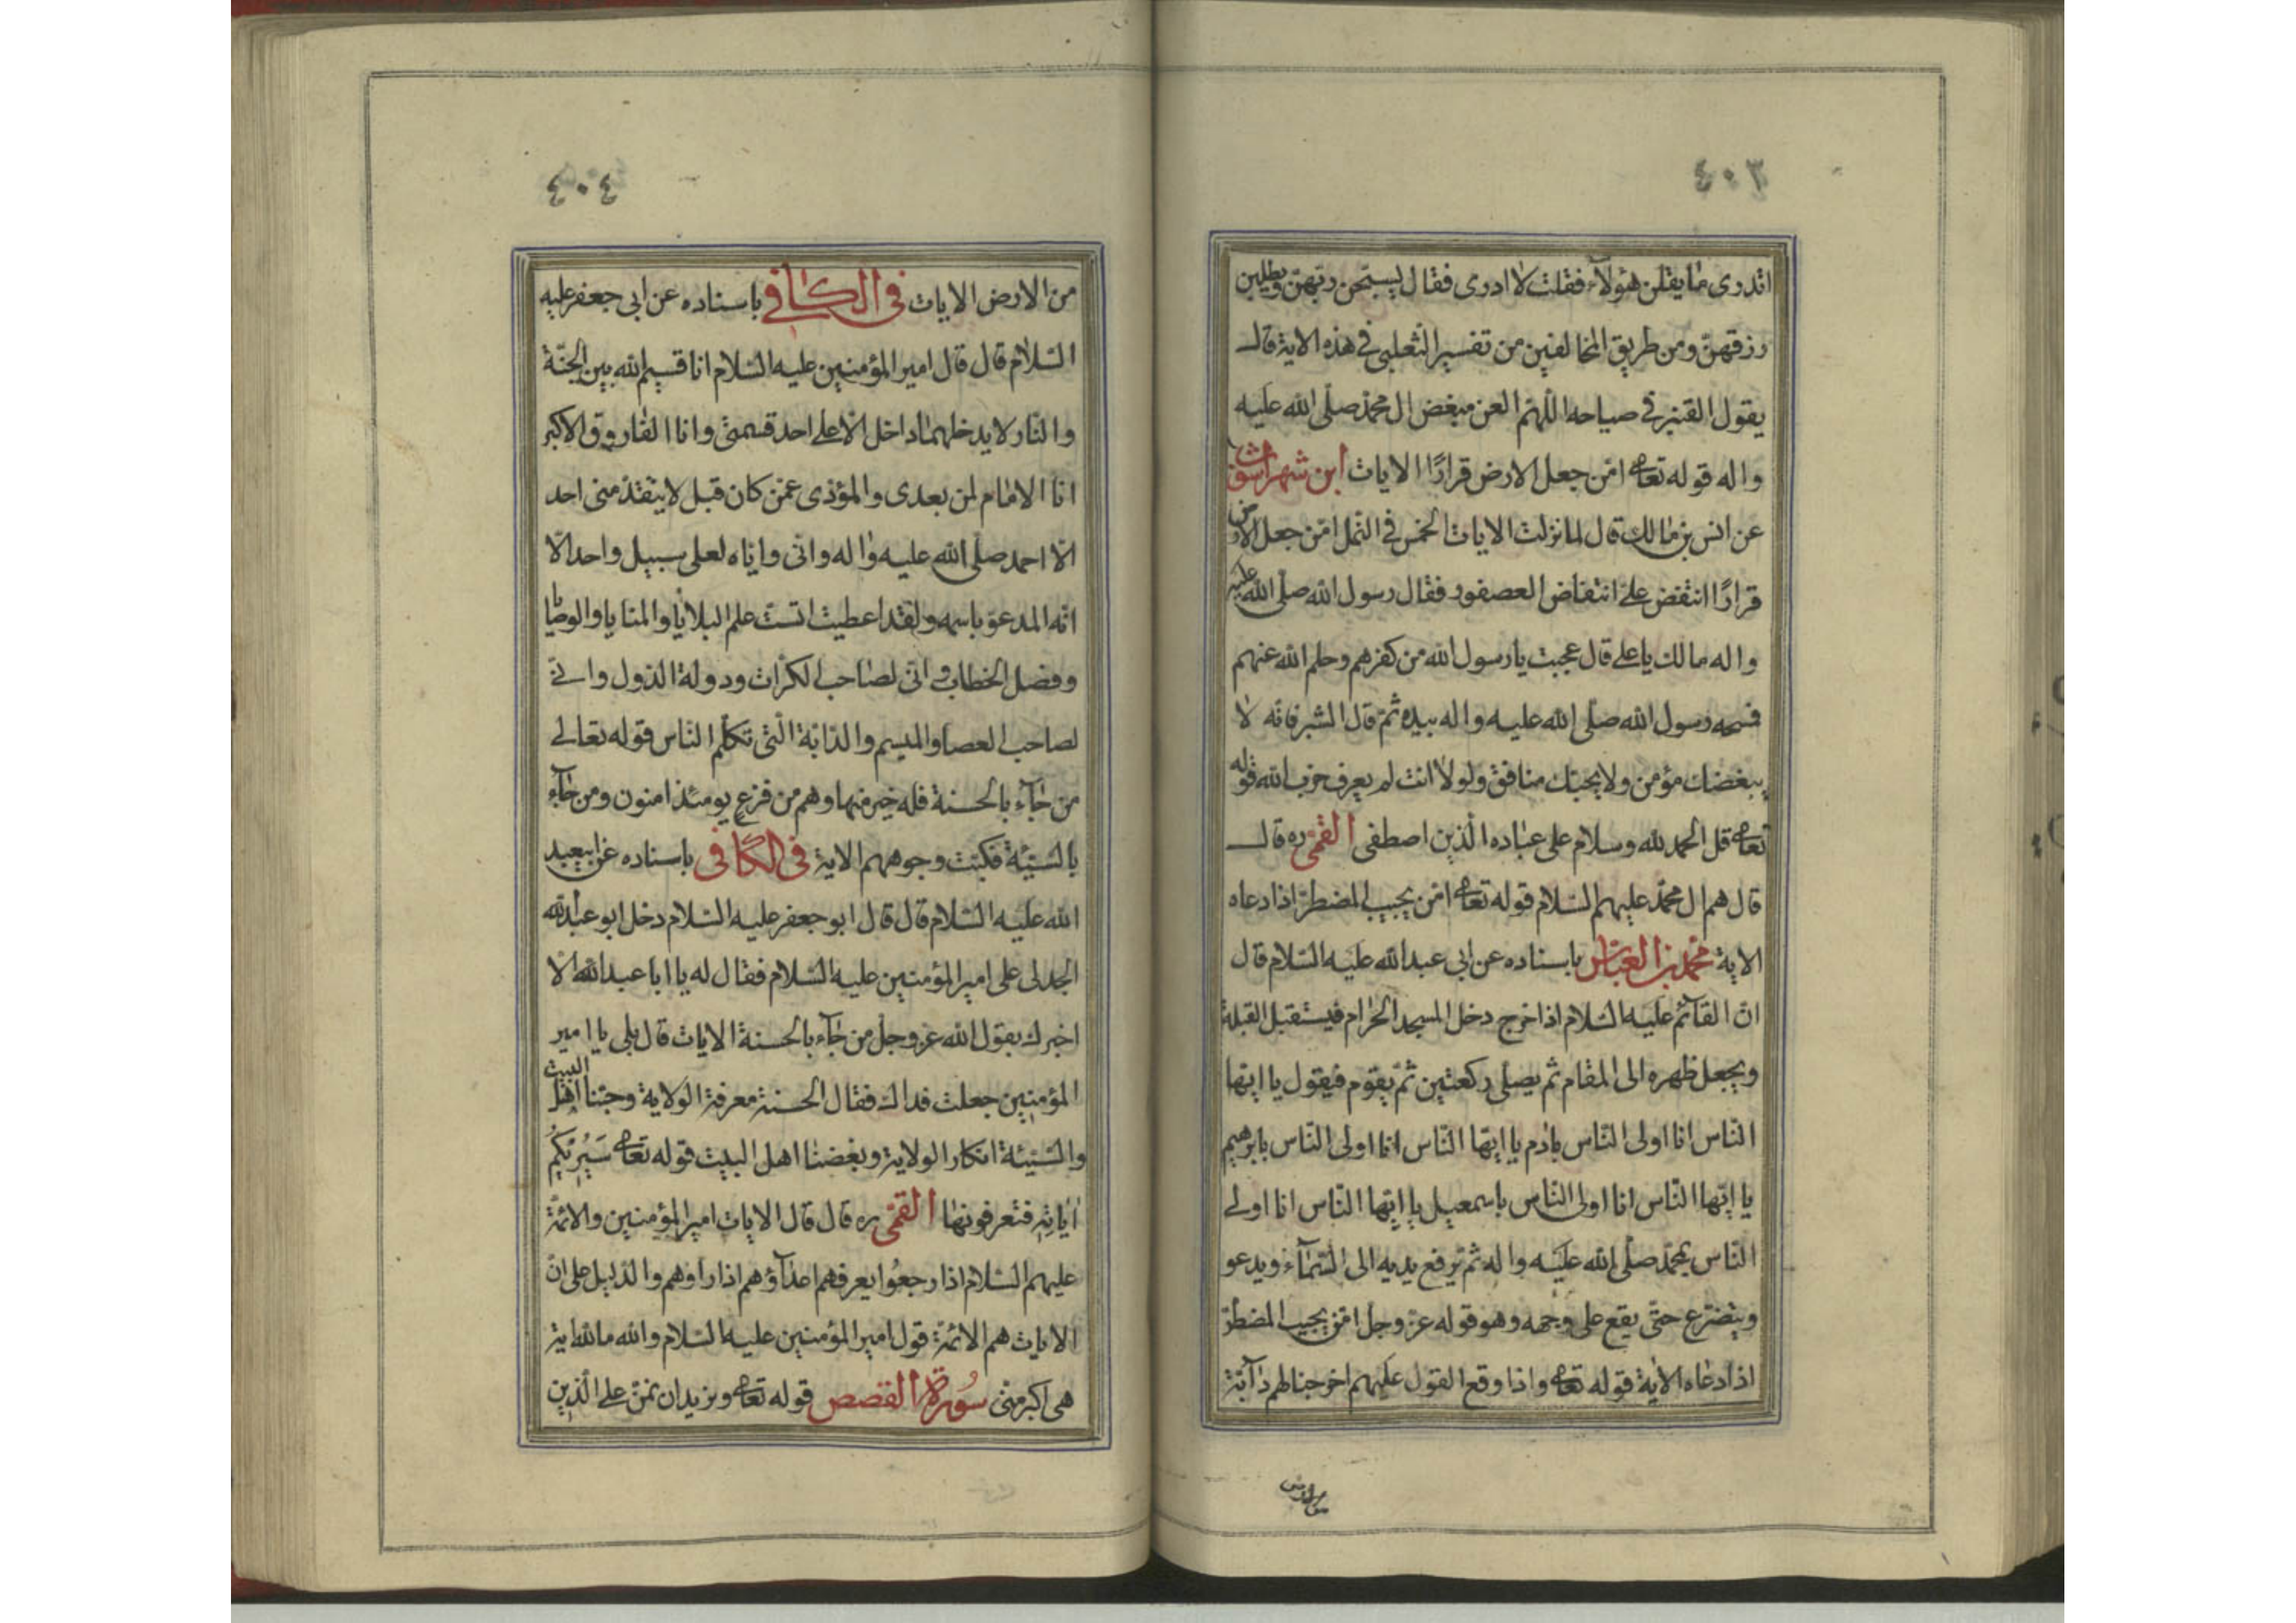 ٤٠٣
اتدری ما یقلن هؤلآء فقلت لا ادری فقال یسبّحن ربّهنّ ویطلبن
رزقهنّ ومن طریق المخالفین من تفسیر الثعلبی فی هذه الایة قال
یقول القنبر فی صیاحه اللّهمّ العن مبغض ال محمّد صلّی الله علیه
واله قوله تعا امّن جعل الارض قرارًا الایات ابن شهراشوب
عن انس بن مالك قال لما نزلت الایات الخمس فی النّمل امّن جعل الارض
قرارًا انتفض علیّ انتفاض العصفور فقال رسول الله صلّی الله علیه
واله مالك یا علی قال عجبت یا رسول الله من کفرهم وحلم الله عنهم
فمسحه رسول الله صلّی الله علیه واله بیده ثمّ قال ابشر فانّه لا
یبغضك مؤمن ولا یحبّك منافق ولولا انت لم یعرف حزب الله قوله
تعا قل الحمد لله وسلام علی عباده الّذین اصطفی القمّی ره قال
قال هم ال محمّد علیهم السّلام قوله تعا امّن یجیب المضطرّ اذا دعاه
الایة محمّد بن العبّاس باسناده عن ابی عبد الله علیه السّلام قال
انّ القآئم علیه السّلام اذا خرج دخل المسجد الحرام فیستقبل القبلة
ویجعل ظهره الی المقام ثم یصلّی رکعتین ثمّ یقوم فیقول یا ایّها
النّاس انا اولی النّاس بادم یا ایّها النّاس انا اولی النّاس بابرهیم
یا ایّها النّاس انا اولی النّاس باسمعیل یا ایّها النّاس انا اولی
النّاس بمحمّد صلّی الله علیه واله ثمّ یرفع یدیه الی السّمآء ویدعو
ویتضرّع حتّی یقع علی وجهه وهو قوله عزّ وجلّ امّن یجیب المضطرّ
اذا دعاه الایة قوله تعا واذا وقع القول علیهم اخرجنا لهم دآبّة
من الارض
٤٠٤
من الارض الایات فی الکافی باسناده عن ابی جعفر علیه
السّلام قال قال امیر المؤمنین علیه السّلام انا قسیم الله بین الجنّة
والنّار لا یدخلهما داخل الّا علی احد قسمیّ وانا الفاروق الاکبر
انا الامام لمن بعدی والمؤدّی عمّن کان قبل لا یتقدّمنی احد
الّا احمد صلّی الله علیه واله وانّی وایّاه لعلی سبیل واحد الّا
انّه المدعوّ باسمه ولقد اعطیت السّت علم البلایا والمنایا والوصایا
وفصل الخطاب وانّی لصاحب الکرّات ودولة الدّول وانّی
لصاحب العصا والمیسم والدّابّة الّتی تکلّم النّاس قوله تعالی
من جآء بالحسنة فله خیر منها وهم من فزع یومئذ امنون ومن جآء
بالسّیّئة فکبّت وجوههم الایة فی الکافی باسناده عن ابیعبد
الله علیه السّلام قال قال ابو جعفر علیه السّلام دخل ابو عبد الله
الجدلی علی امیر المؤمنین علیه السّلام فقال له یا ابا عبد الله الّا
اخبرك بقول الله عزّ وجلّ من جآء بالحسنة الایات قال بلی یا امیر
المؤمنین جعلت فداك فقال الحسنة معرفة الولایة وحبّنا اهل البیت
والسّیّئة انکار الولایة وبغضنا اهل البیت قوله تعا سَیُرِیکُمْ
ایاتِهِ فتعرفونها القمّی ره قال قال الایات امیر المؤمنین والائمّة
علیهم السّلام اذا رجعوا یعرفهم اعدآؤهم اذا راوهم والدّلیل علی انّ
الایات هم الائمّة قول امیر المؤمنین علیه السّلام والله ما لله ایة
هی اکبر منّی سُورة القصص قوله تعا ونرید ان نمنّ علی الّذین